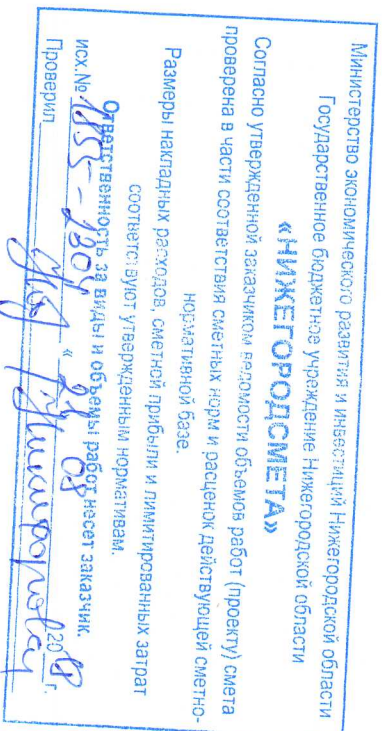 Министерство экономического развития и инвестиций Нижегородской области
Государственное бюджетное учреждение Нижегородской области
«НИЖЕГОРОДСМЕТА»
Согласно утвержденной заказчиком ведомости объемов работ (проекту) смета
проверена в части соответствия сметных норм и расценок действующей сметно-
нормативной базе.
Размеры накладных расходов, сметной прибыли и лимитированных затрат
соответствуют утвержденным нормативам.
Ответственность за виды и объемы работ несет заказчик.
исх.№ « 08 20 г.
Проверил